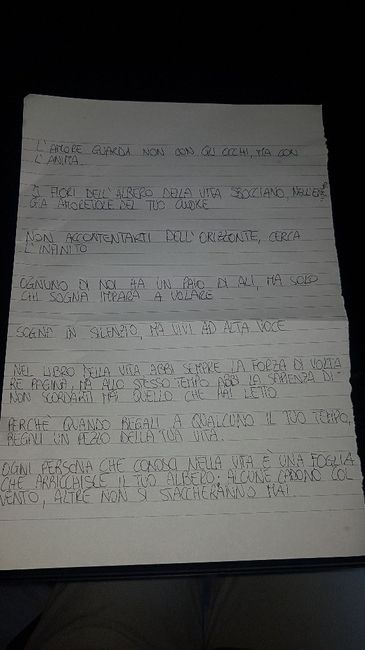 L'AMORE GUARDA NON CON GLI OCCHI, MA CON
L'ANIMA.
I FIORI DELL'ALBERO DELLA VITA SBOCCIANO NELL'ENER
GIA AMOREVOLE DEL TUO CUORE
NON ACCONTENTARTI DELL'ORIZZONTE, CERCA
L'INFINITO
OGNUNO DI NOI HA UN PAIO DI ALI, MA SOLO
CHI SOGNA IMPARA A VOLARE
SOGNA IN SILENZIO, MA VIVI AD ALTA VOCE
NEL LIBRO DELLA VITA ABBI SEMPRE LA FORZA DI VOLTA
RE PAGINA, MA ALLO STESSO TEMPO ABBI LA SAPIENZA DI
NON SCORDARTI MAI QUELLO CHE HAI LETTO
PERCHÈ QUANDO REGALI A QUALCUNO IL TUO TEMPO,
REGALI UN PEZZO DELLA TUA VITA.
OGNI PERSONA CHE CONOSCI NELLA VITA È UNA FOGLIA
CHE ARRICCHISCE IL TUO ALBERO: ALCUNE CADONO COL
VENTO, ALTRE NON SI STACCHERANNO MAI.